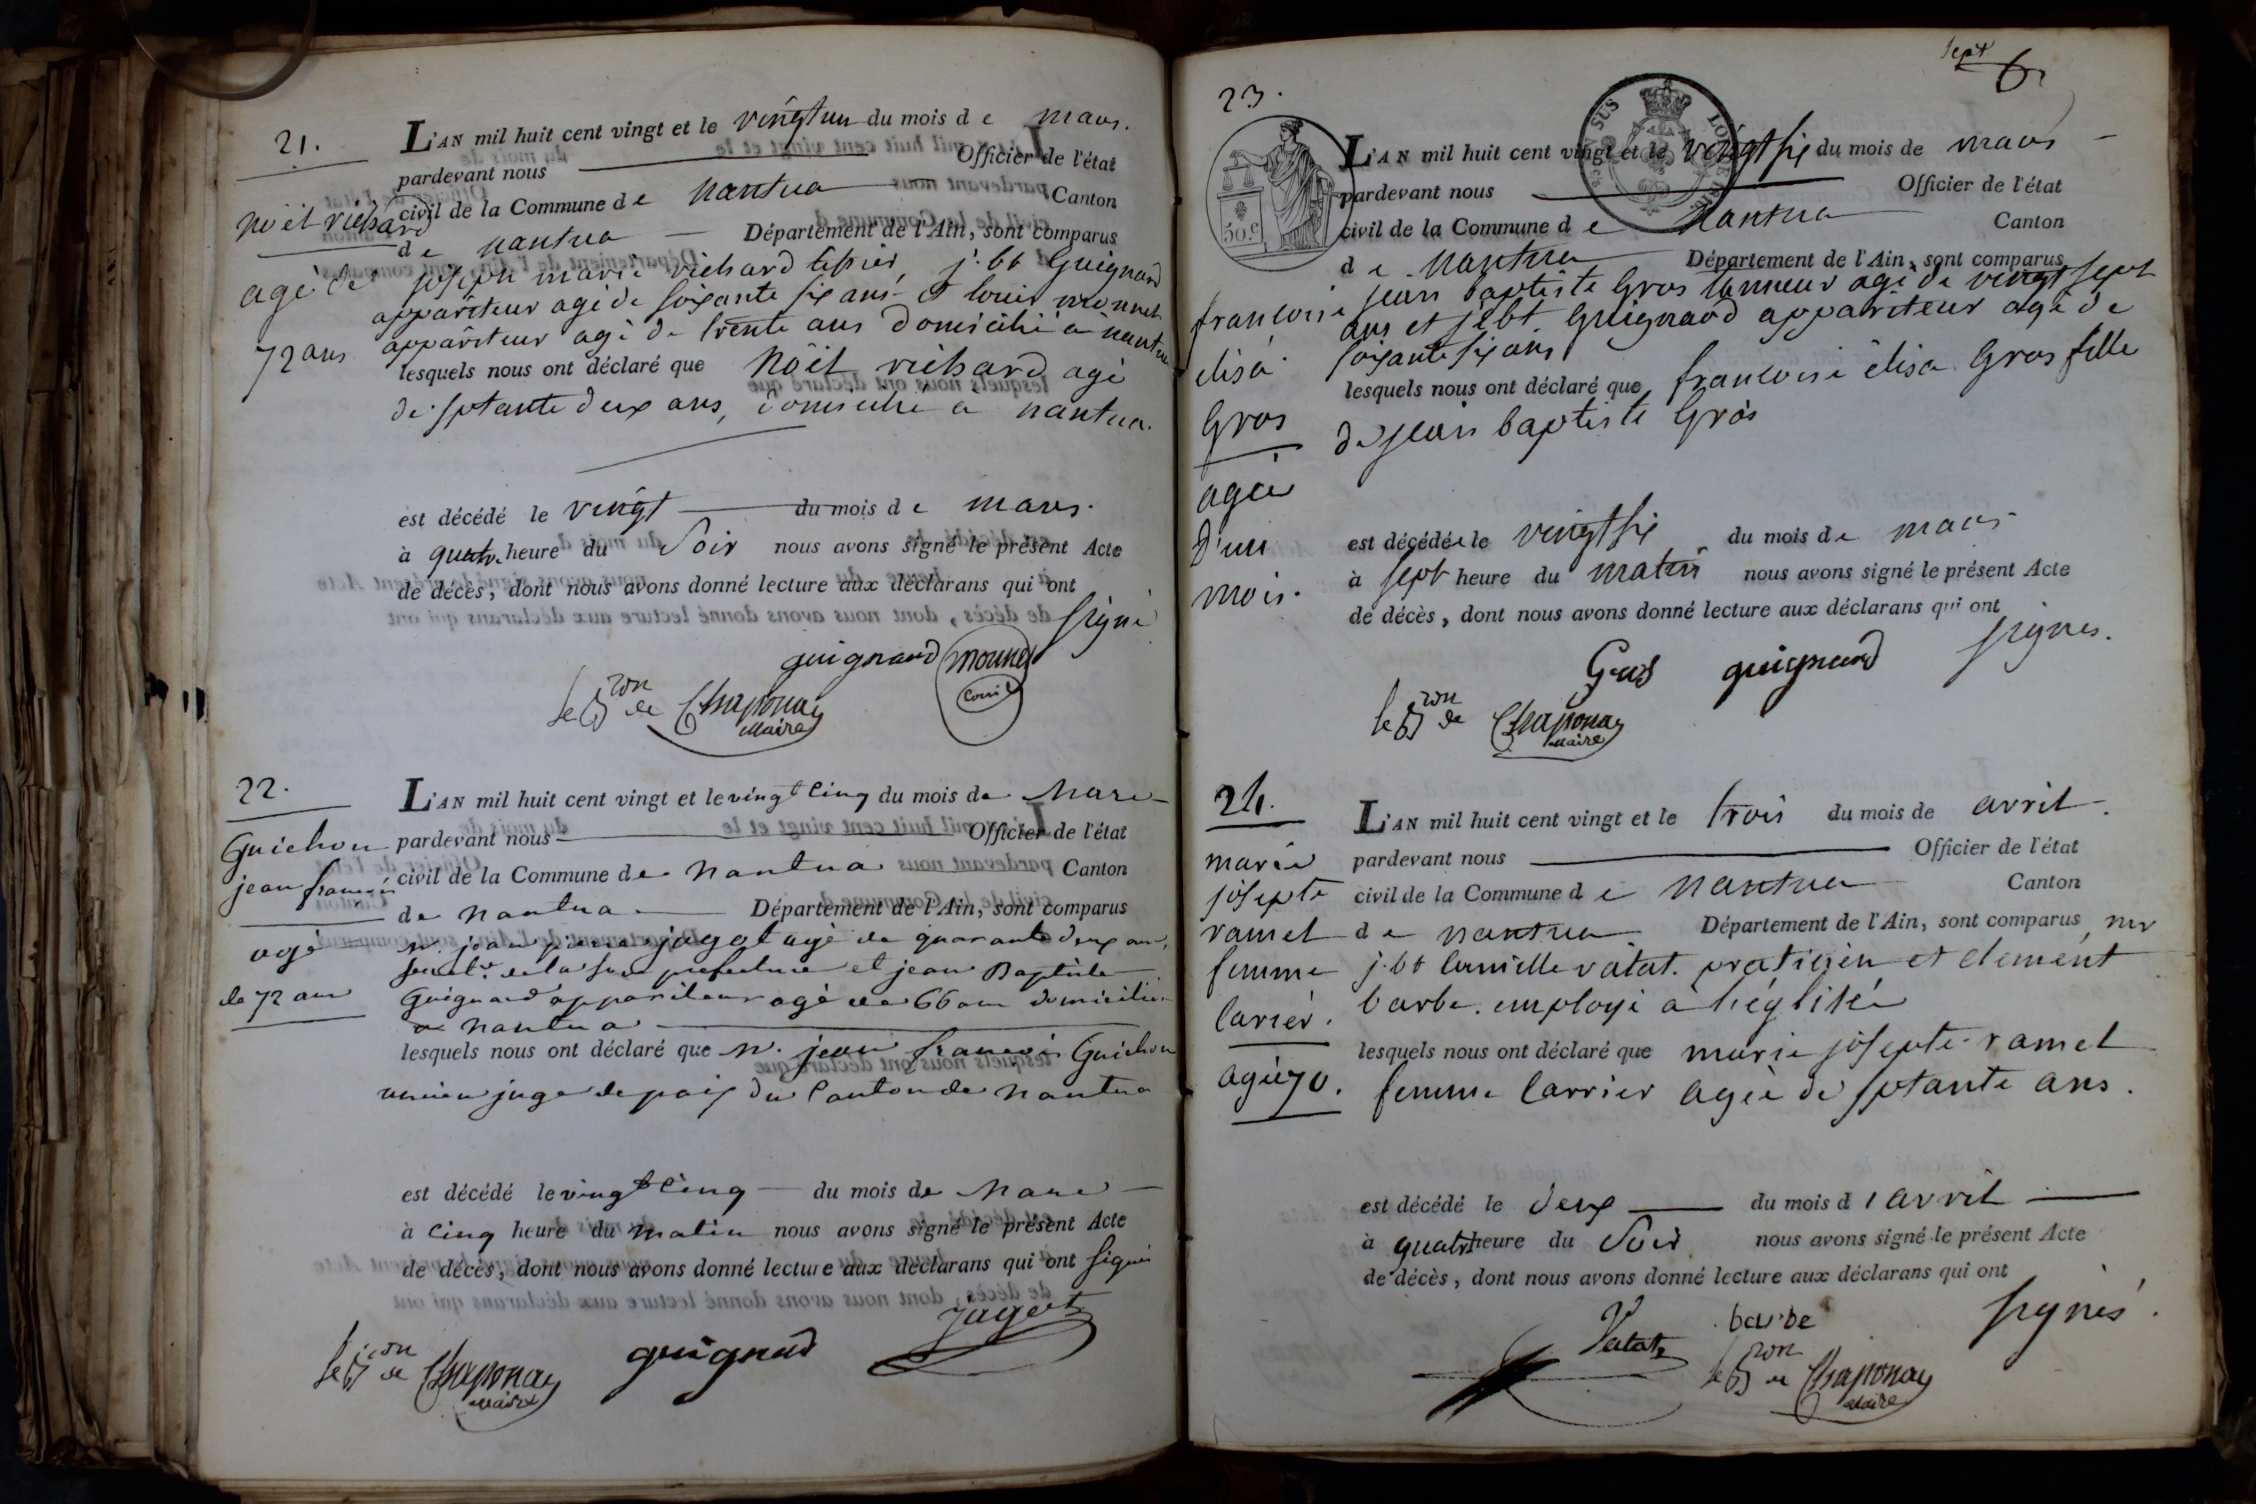 21.
Noël richard
agé de
72 ans
L'AN mil huit cent vingt et le vingtun du mois de mars.
pardevant nous Officier de l'état
civil de la Commune de nantua Canton
de nantua Département de l'Ain, sont comparus
joseph marie richard j. bt Guignard
appariteur agé de soixante six ans et louis monnet
appariteur agé de trente ans domicilié a nantua
lesquels nous ont déclaré que Noël richard agé
de sptante deux ans, domicilié a nantua.
est décédé le vingt du mois de mars.
à quatre heure du Soir nous avons signé le présent Acte
de décès, dont nous avons donné lecture aux déclarans qui ont
signé
guignard monnet
Louis
le Bon de Chaponay
Maire
22.
Guichon
jean francois
agé
de 72 ans
L'AN mil huit cent vingt et le vingt Cinq du mois de Mars
pardevant nous Officier de l'état
civil de la Commune de Nantua Canton
de Nantua Département de l'Ain, sont comparus
Mr. jean pierre jagot agé de quarante deux ans,
de la sous prefecture et jean Baptiste
Guignard appariteur agé de 66 ans domiciliés
a Nantua
lesquels nous ont déclaré que Mr. jean francois Guichon
ancien juge de paix du Canton de Nantua
est décédé le vingt Cinq du mois de Mars
à Cinq heure du Matin nous avons signé le présent Acte
de décès, dont nous avons donné lecture aux déclarans qui ont signé
Jagot
le Bon de Chaponay guignard
Maire
Sept
6
23.
50 c
LOI
francoise
elisa
Gros
agée
D'un
mois.
L'AN mil huit cent vingt et le vingt six du mois de mars
pardevant nous Officier de l'état
civil de la Commune de Nantua Canton
de Nantua Département de l'Ain, sont comparus
jean baptiste Gros tanneur agé de vingt sept
ans et j. bt. Guignard appariteur agé de
soixante six ans
lesquels nous ont déclaré que francoise élisa Gros fille
de jean baptiste Gros
est décédée le vingt six du mois de mars
à sept heure du matin nous avons signé le présent Acte
de décès, dont nous avons donné lecture aux déclarans qui ont
signés.
Gros guignard
le Bon de Chaponay
Maire
24.
marie
josepte
ramel
femme
Carrier.
agée 70.
L'AN mil huit cent vingt et le trois du mois de avril.
pardevant nous Officier de l'état
civil de la Commune de Nantua Canton
de nantua Département de l'Ain, sont comparus, mr
j. bt Camille vatat. praticien et clement
barbe. employé à l'église
lesquels nous ont déclaré que marie josepte ramel
femme Carrier agée de sptante ans.
est décédé le deux du mois d'avril
à quatre heure du Soir nous avons signé le présent Acte
de décès, dont nous avons donné lecture aux déclarans qui ont
signés.
Vatat barbe
le Bon de Chaponay
Maire